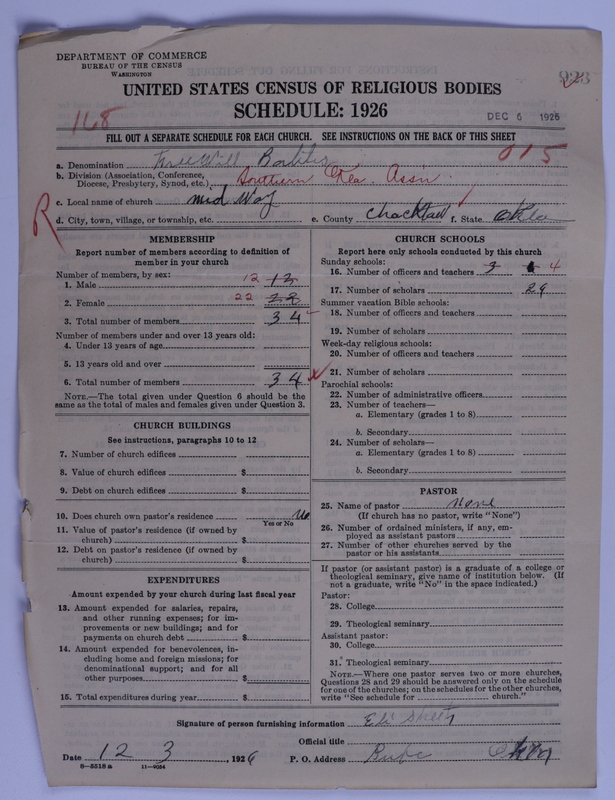 DEPARTMENT OF COMMERCE
BUREAU OF THE CENSUS
WASHINGTON
923
UNITED STATES CENSUS OF RELIGIOUS BODIES
SCHEDULE: 1926
DEC 6 1926
FILL OUT A SEPARATE SCHEDULE FOR EACH CHURCH. SEE INSTRUCTIONS ON THE BACK OF THIS SHEET
a. Denomination Free Will
b. Division (Association, Conference, Diocese, Presbytery, Synod, etc.) Southern Assn.
c. Local name of church mid Way
d. City, town, village, or township, etc. e. County f. State Okla
R
MEMBERSHIP
Report number of members according to definition of
member in your church
Number of members, by sex:
1. Male 12 12
2. Female 22
3. Total number of members 34
Number of members under and over 13 years old:
4. Under 13 years of age
5. 13 years old and over
6. Total number of members 34 x
NOTE.—The total given under Question 6 should be
same as the total of males and females given under Question 3.
CHURCH BUILDINGS
See instructions, paragraphs 10 to 12
7. Number of church edifices
8. Value of church edifices $
9. Debt on church edifices $
10. Does church own pastor's residence No
Yes or No
11. Value of pastor's residence (if owned by
church) $
12. Debt on pastor's residence (if owned by
church) $
EXPENDITURES
Amount expended by your church during last fiscal year
13. Amount expended for salaries, repairs,
and other running expenses; for im-
provements or new buildings; and for
payments on church debt $
14. Amount expended for benevolences, in-
cluding home and foreign missions; for
denominational support; and for all
other purposes $
15. Total expenditures during year $
CHURCH SCHOOLS
Report here only schools conducted by this church
Sunday schools:
16. Number of officers and teachers 3 4
17. Number of scholars 29
Summer vacation Bible schools:
18. Number of officers and teachers
19. Number of scholars
Week-day religious schools:
20. Number of officers and teachers
21. Number of scholars
Parochial schools:
22. Number of administrative officers
23. Number of teachers—
a. Elementary (grades 1 to 8)
b. Secondary
24. Number of scholars—
a. Elementary (grades 1 to 8)
b. Secondary
PASTOR
25. Name of pastor None
(If church has no pastor, write "None")
26. Number of ordained ministers, if any, em-
ployed as assistant pastors
27. Number of other churches served by the
pastor or his assistants
If pastor (or assistant pastor) is a graduate of a college or
theological seminary, give name of institution below. (If
not a graduate, write "No" in the space indicated.)
Pastor:
28. College
29. Theological seminary
Assistant pastor:
30. College
31. Theological seminary
NOTE.—Where one pastor serves two or more churches,
Questions 28 and 29 should be answered only on the schedule
for one of the churches; on the schedules for the other churches,
write "See schedule for church."
Signature of person furnishing information
Official title
Date 12 3, 1926 P. O. Address
8—5518a 11—9054